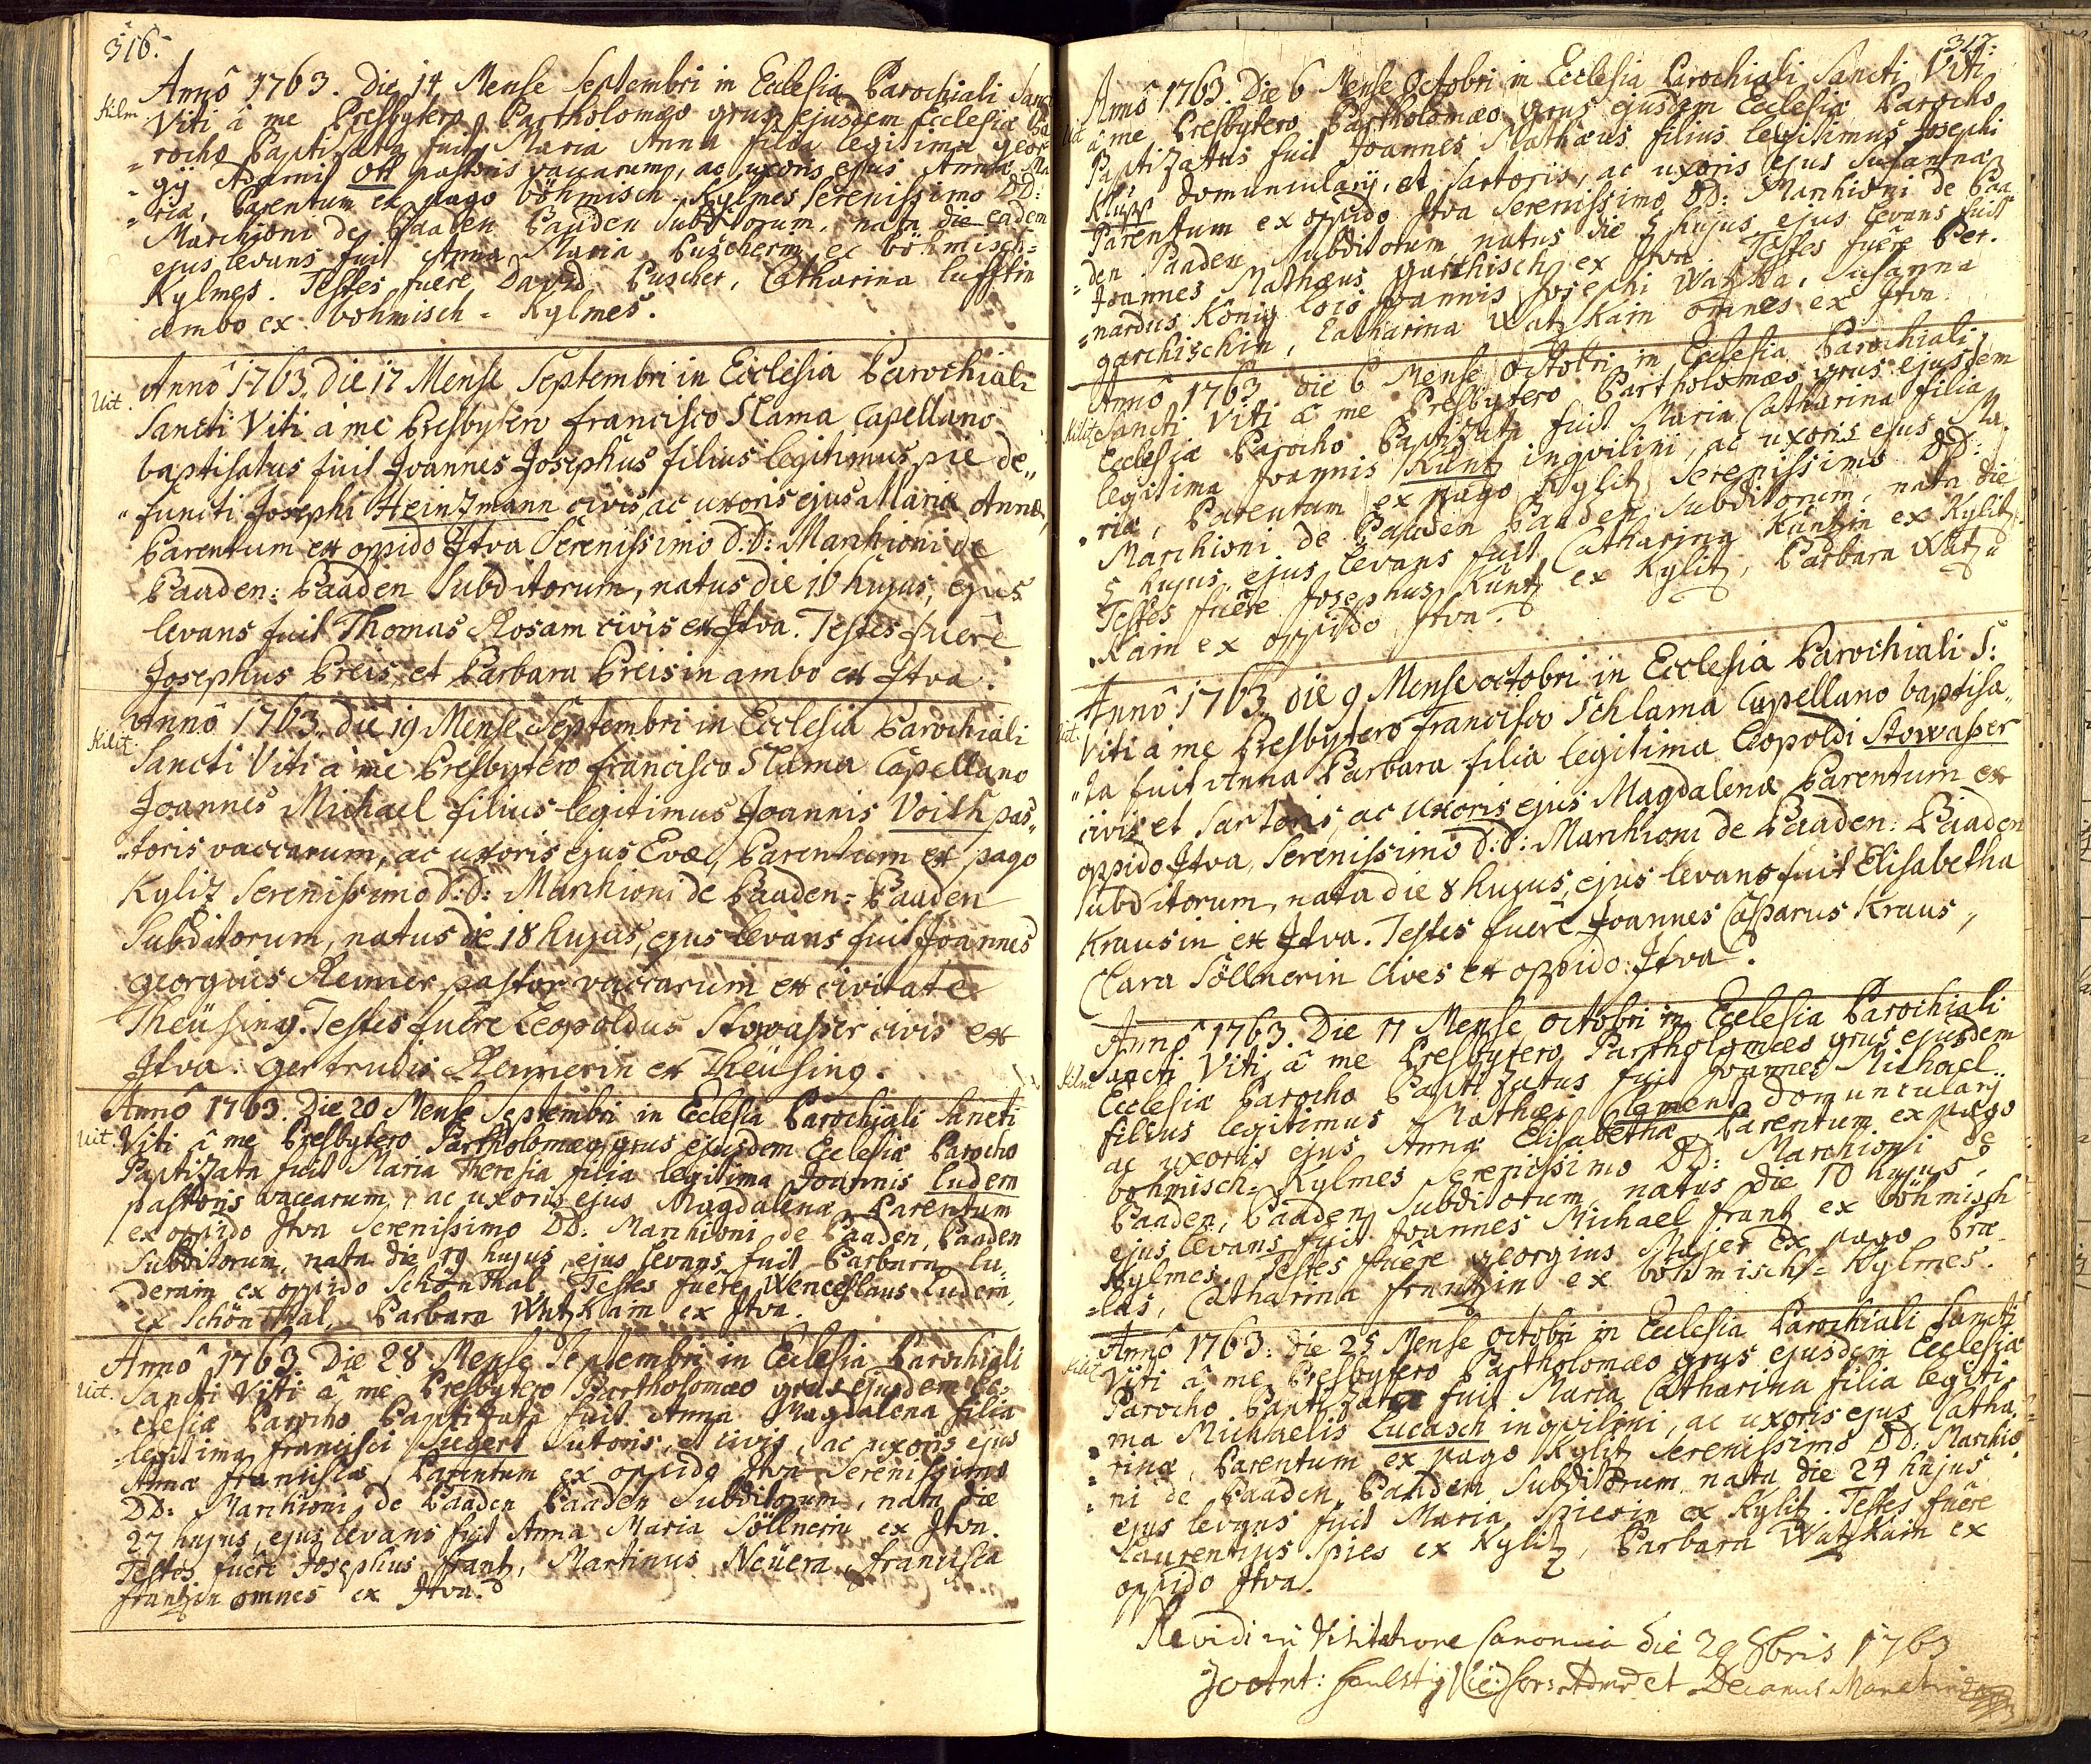 316.
Annô 1763. Die 14 Mense Septembri in Ecclesia Parochiali Sanct
Kilm
Viti â me Presbytero Partholomæo grus ejusdem Ecclesiæ Pa
=rocho Paptizata fuit Maria Anna filia legitima geor
=gÿ Adami Ott pastoris vaccarum, ac uxoris ejus Annæ Ma
=riæ, Parentum ex pago böhmisch-Kylmes Serenissimo DD:
Marchioni de Paaden Paaden Subditorum, nata die eadem
ejus levans fuit Anna Maria Puscherin ex böhmisch=
Kylmes. Testes fuêre David Puscher, Catharina lufftin
ambo ex bohmisch-Kylmes.
Uit.
Annô 1763. die 17 Mense Septembri in Ecclesia Parochiali
Sancti Viti â me Presbytero francisco Slama Capellano
baptisatus fuit Joannes Josephus filius legitimus pie de„
„functi Josephi Heintzmann civis, ac uxoris ejus Mariæ Annæ,
Parentum ex oppido Jtva Serenissimo D:D: Marchioni de
Paaden: Paaden Subditorum, natus die 16 hujus, ejus
levans fuit Thomas Rosam civis ex Jtva. Testes fuêre
Josephus Preis, et Parbara Preisin ambo ex Jtva.
Annô 1763. die 19 Mense Septembri in Ecclesia Parochiali
Kilit.
Sancti Viti â me Presbytero francisco Slama Capellano
Joannes Michael filius legitimus Joannis Voith pas„
„toris vaccarum, ac uxoris ejus Evæ, Parentum ex pago
Kylitz Serenissimo D:D: Marchioni de Paaden=Paaden
Subditorum, natus die 18 hujus, ejus levans fuit Joannes
georgius Remer pastor vaccarum ex civitate
Theüsing. Testes fuêre Leopoldus Stowasser civis ex
Jtva: Gertrudis Remerin ex Theüsing.
Annô 1763. Die 20 Mense Septembri in Ecclesia Parochiali Sancti
Uit.
Viti â me Presbytero Partholomæo grus ejusdem Ecclesiæ Parocho
Paptizata fuit Maria Theresia filia legitima Joannis Ludem
pastoris vaccarum, ac uxoris ejus Magdalenæ Parentum
ex oppido Jtva Serenissimo DD: Marchioni de Paaden, Paaden
Subditorum, nata die 19 hujus, ejus levans fuit Parbara lu=
demin ex oppido Schönthal, Testes fuêre Wenceslaus Ludem
ex Schönthal, Parbara Watzkain ex Jtva.
Annô 1763. Die 28 Mense Septembri in Ecclesia Parochiali
Uit.
Sancti Viti â me Presbytero Partholomæo grus ejusdem Ec=
clesiæ Parocho Paptizata fuit Anna Magdalena filia
legitima francisci Siegert Sutoris, et civis, ac uxoris ejus
Annæ franciscæ, Parentum ex oppido Jtva Serenissimo
DD: Marchioni de Paaden Paaden Subditorum, nata die
27 hujus, ejus levans fuit Anna Maria Söllnerin ex Jtva.
Testes fuêre Josephus frantz, Martinus Neüera, francisca
frantzin omnes ex Jtva.
317.
Annô 1763. Die 6 Mense Octobri in Ecclesia Parochiali Sancti Viti
Uit.
â me Presbytero Partholomæo grus ejusdem Ecclesiæ Parocho
Paptizatus fuit Joannes Mathæus filius legitimus Josephi
Klupp domuncularÿ, et Sartoris, ac uxoris ejus Susannæ
Parentum ex oppido Jtva Serenissimo DD: Marchioni de Paa
=den Paaden Subditorum natus die 5 hujus, ejus levans fuit
Joannes Mathæus garthisch ex Jtva. Testes fuêre Ber.
=nardus König loco Joannis Josephi Watzka, Susanna
garchischin, Catharina Watzkain omnes ex Jtva.
Annô 1763. die 6 Mense Octobri in Ecclesia Parochiali
Kilitz
Sancti Viti â me Presbytero Partholomæo grus ejusdem
Ecclesiæ Parocho Paptizata fuit Maria Catharina filia
legitima Joannis Kuntz inqvilini, ac uxoris ejus Ma.
.riæ, Parentum ex pago Kylitz Serenissimo DD:
Marchioni de Paaden Paaden Subditorum, nata die
5 hujus, ejus levans fuit Catharina Kuntzin ex Kylitz
Testes fuêre Josephus Kuntz ex Kylitz, Parbara Watz=
.kain ex oppido Jtva.
Annô 1763. die 9 Mense octobri in Ecclesia Parochiali S:
Uit.
Viti â me Presbytero francisco Schlama Capellano baptisa„
„ta fuit Anna Parbara filia legitima Leopoldi Stowasser
civis et Sartoris, ac uxoris ejus Magdalenæ Parentum ex
oppido Jtva, Serenissimo D:D: Marchioni de Paaden: Paaden
Subditorum, nata die 8 hujus, ejus levans fuit Elisabetha
Krausin ex Jtva. Testes fuêre Joannes Casparus Kraus,
Clara Söllnerin Cives ex oppido Jtva.
Annô 1763. Die 11 Mense octobri in Ecclesia Parochiali
Kilm
Sancti Viti â me Presbytero Partholomæo grus ejusdem
Ecclesiæ Parocho Paptizatus fuit Joannes Michael
filius legitimus Mathæi Clement Domuncularÿ
ac uxoris ejus Annæ Elisabethæ, Parentum ex pago
bohmisch=Kylmes Serenissimo DD: Marchioni de
Paaden, Paaden Subditorum, natus die 10 hujus,
ejus levans fuit Joannes Michael frantz ex böhmisch
Kylmes. Testes fuêre georgius Majer ex pago Pra
=les, Catharina frantzin ex böhmisch=Kylmes.
Annô 1763. die 25 Mense octobri in Ecclesia Parochiali Sancti
Kilit
Viti â me Presbytero Partholomæo grus ejusdem Ecclesiæ
Parocho Paptizata fuit Maria Catharina filia legiti
=ma Michaelis Lucasch inqvilini, ac uxoris ejus Catha=
=rinæ, Parentum ex pago Kylitz Serenissimo DD: Marchio
=ni de Paaden, Paaden Subditorum, nata die 24 hujus
ejus levans fuit Maria Spiesin ex Kylitz. Testes fuêre
Laurentius Spies ex Kylitz, Parbara Watzkain ex
oppido Jtva.
Revidi in Visitatione Canonica die 29 8bris 1763
et Decanus